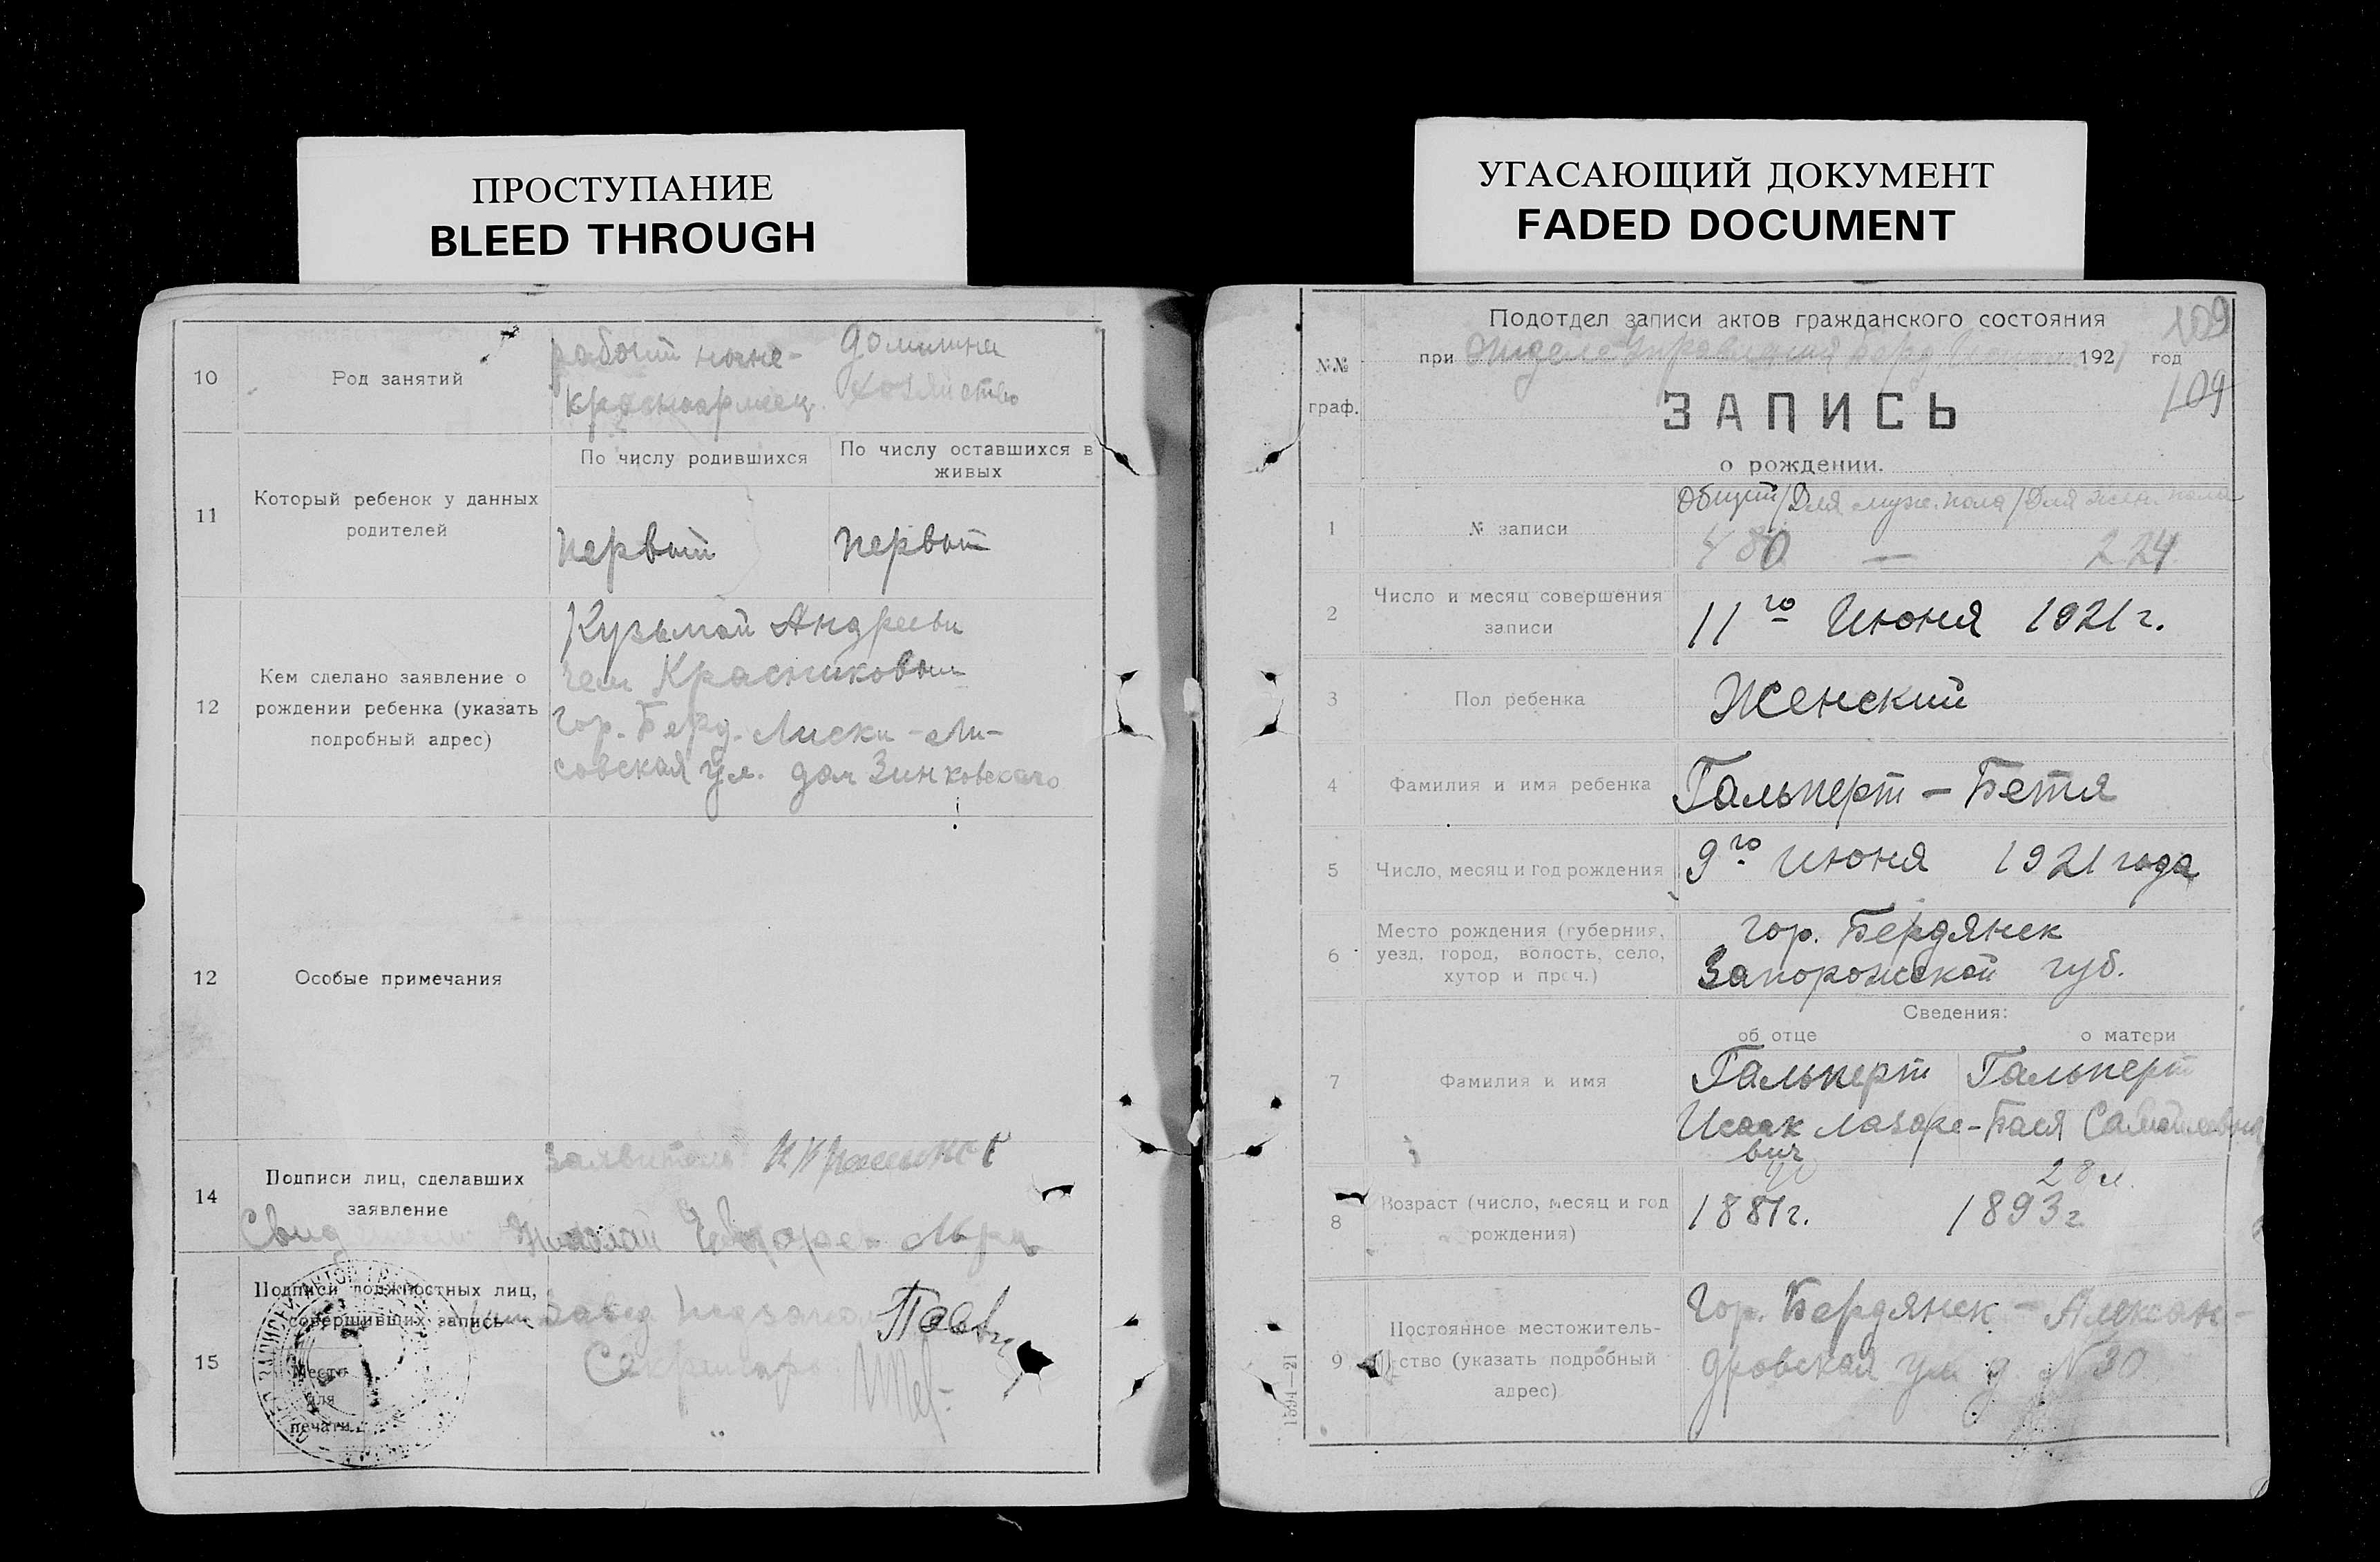 ПРОСТУПАНИЕ
BLEED THROUGH
10
Род занятий
рабочий ныне-
красноармеец
домашнее
хозяйство
11
Который ребенок у данных
родителей
По числу родившихся
По числу оставшихся в
живых
первый
первый
12
Кем сделано заявление о
рождении ребенка (указать
подробный адрес)
Кузьмой Андрееви
чем Красниковым
гор. Берд. Лиски - Ли-
совская ул. дом Зинковского
12
Особые примечания
14
Подписи лиц, сделавших
заявление
заявитель
15
Подписи должностных лиц,
совершивших запись
Место
для
печати
Завед
Секретарь
УГАСАЮЩИЙ ДОКУМЕНТ
FADED DOCUMENT
109
Подотдел записи актов гражданского состояния
№№
граф.
при Отделе Управления Берд. 1921 год
109
ЗАПИСЬ
о рождении.
1
№ записи
Общий/Для муж. пола/Для жен. пола
480 — 224
2
Число и месяц совершения
записи
11го Июня 1921 г.
3
Пол ребенка
Женский
4
Фамилия и имя ребенка
Гальперт - Бетя
5
Число, месяц и год рождения
9го июня 1921 года
6
Место рождения (губерния,
уезд, город, волость, село,
хутор и проч.)
гор. Бердянск
Запорожской губ.
Сведения:
об отце
о матери
7
Фамилия и имя
Гальперт
Исаак Лазаре-
вич
Гальперт
Бася Самойловна
8
Возраст (число, месяц и год
рождения)
40
1881 г.
28 л.
1893 г
9
Постоянное местожитель-
ство (указать подробный
адрес)
Гор. Бердянск - Алексан-
дровская ул. д. №30
1594—21